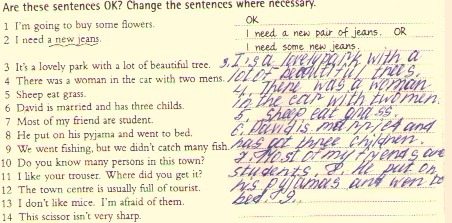 Are these sentences OK? Change the sentences where necessary.
1 I'm going to buy some flowers.
OK
2 I need a new jeans.
I need a new pair of jeans. OR
I need some new jeans.
3 It's a lovely park with a lot of beautiful tree.
4 There was a woman in the car with two mens.
5 Sheep eat grass.
6 David is married and has three childs.
7 Most of my friend are student.
8 He put on his pyjama and went to bed.
9 We went fishing, but we didn't catch many fish.
10 Do you know many persons in this town?
11 I like your trouser. Where did you get it?
12 The town centre is usually full of tourist.
13 I don't like mice. I'm afraid of them.
14 This scissor isn't very sharp.
3. It's a lovely park with a
lot of beautiful trees.
4. There was a woman
in the car with two men.
5. sheep eat grass.
6. David is married and
has got three children.
7. Most of my friends are
students. 8. He put on
his pyjamas and went to
bed. 9.